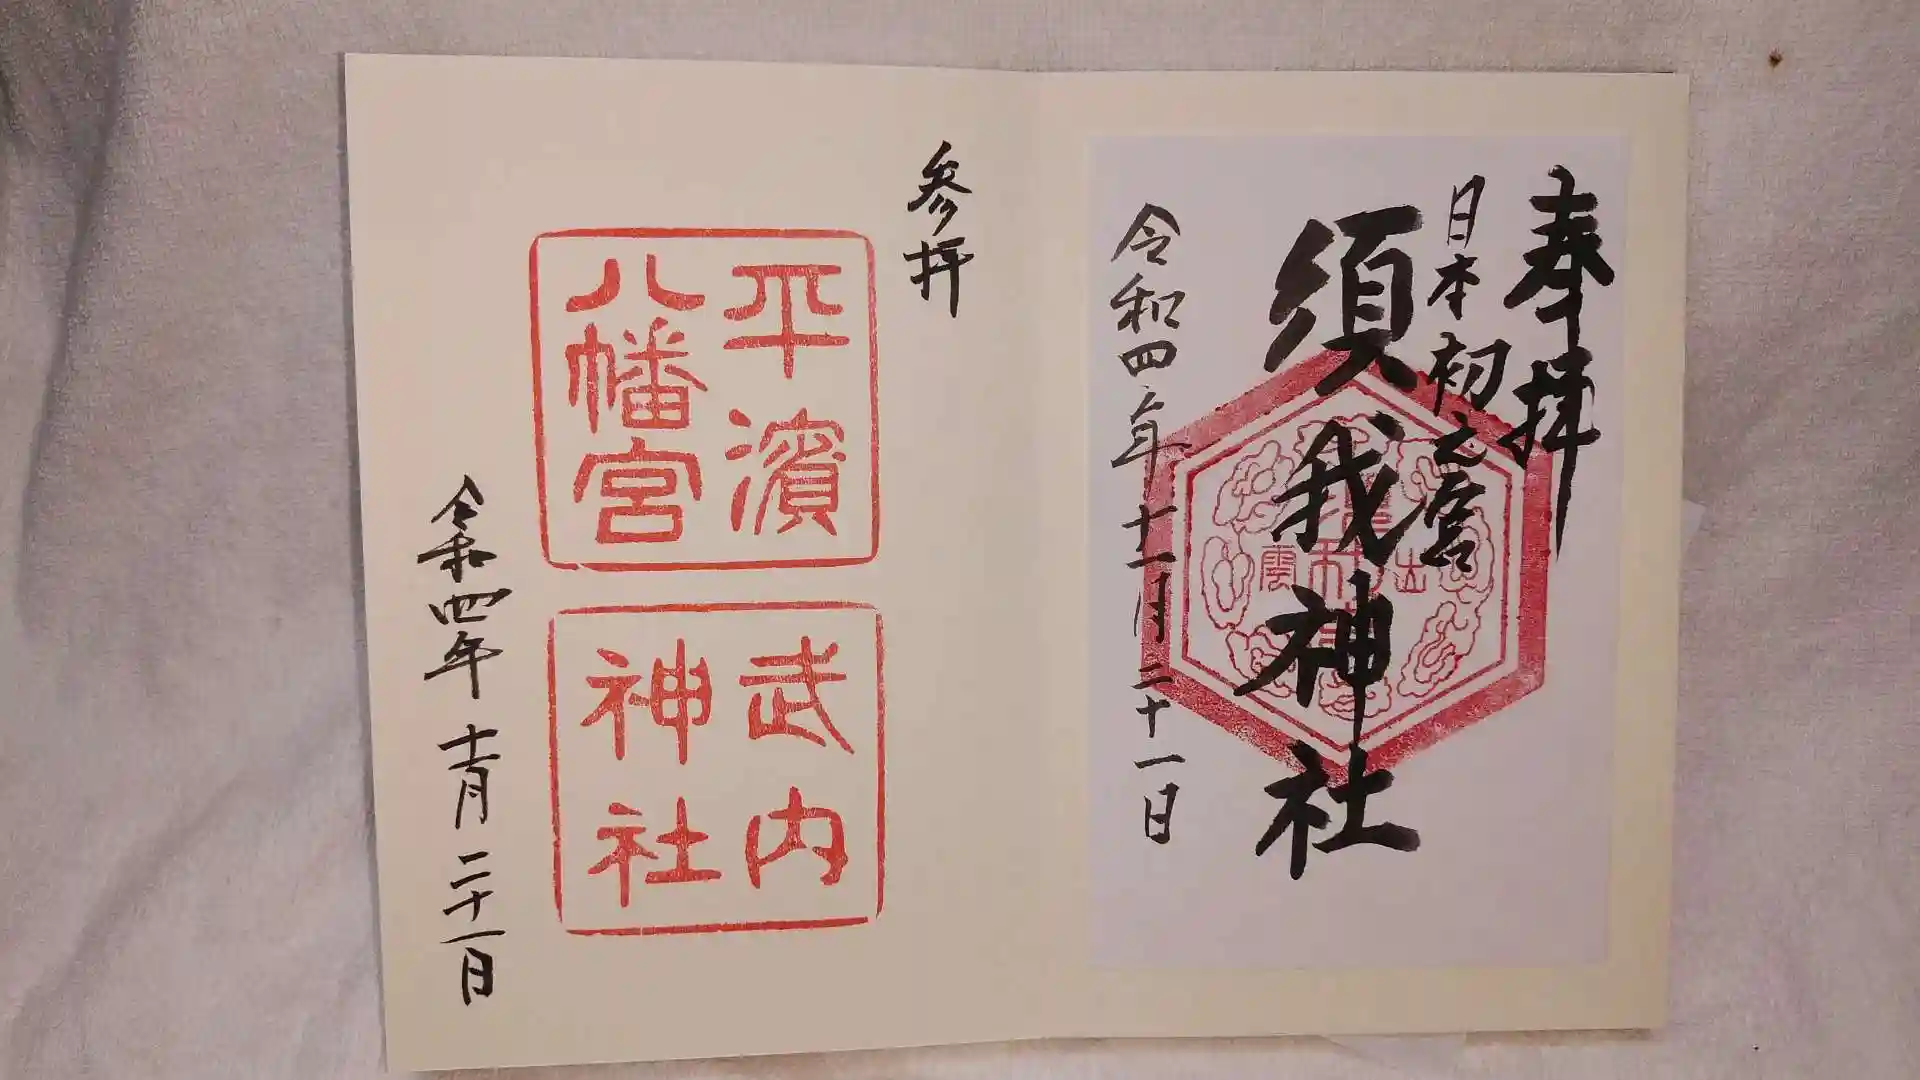 奉拝
日本初之宮
須我神社
出
雲
令和四年十一月二十一日
参拝
平濱
八幡宮
武内
神社
令和四年十一月二十一日